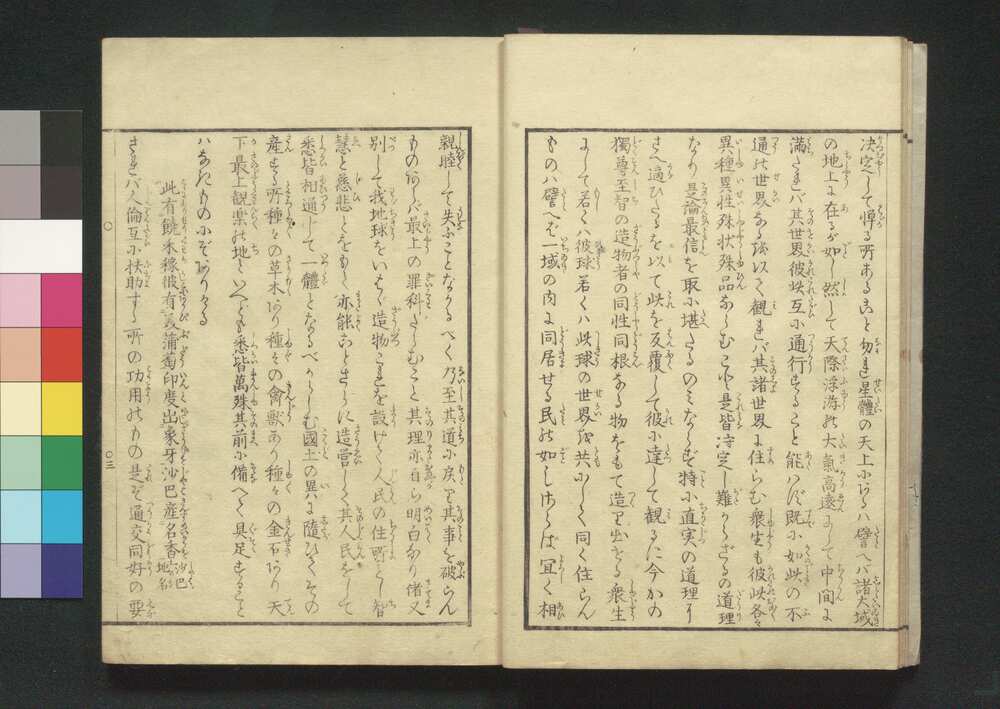 決定して憚る所あること勿れ星體の天上にあるハ譬へバ諸大域
の地上に在るが如し然して天際浮游の大氣高遠にして中間に
満たれバ其世界彼此互に通行すること能ハず既に如此の不
通の世界なるを以て観れバ其諸世界に住らむ衆生も彼此各々
異種異性殊状殊品ならむこと是皆決定し難からざるの道理
なり是論最信を取に堪たるのミならず特に直実の道理
さへ適ひたるを以て此を反覆して彼に達して観るに今かの
獨尊至智の造物者の同性同根なる物をもて造り出せる衆生
にして若くハ彼球若くハ此球の世界を共にして同く住らん
ものハ譬へば一域の内に同居せる民の如しさらば宜く相
親睦して失ふことなかるべく乃至其道に戻り其事を破らん
ものあらバ最上の罪科たらむこと其理亦自ら明白なり偖又
別して我地球をいはゞ造物これを設けて人民の住所とし智
慧と慈悲とをもて亦能ことさらに造営して其人民をして
悉皆相通じて一體となるべからしむ國土の異なるに隨ひてその
産する所種々の草木あり種々の禽獣あり種々の金石あり天
下最上観楽の地といへども悉皆萬殊其前に備へて具足すること
ハなきものにぞありける
此有饒禾稼彼有美蒲萄印度出象牙沙巴産名香沙巴地名
されバ人倫互に扶助する所の功用のもの是ぞ通交同好の要
〇三